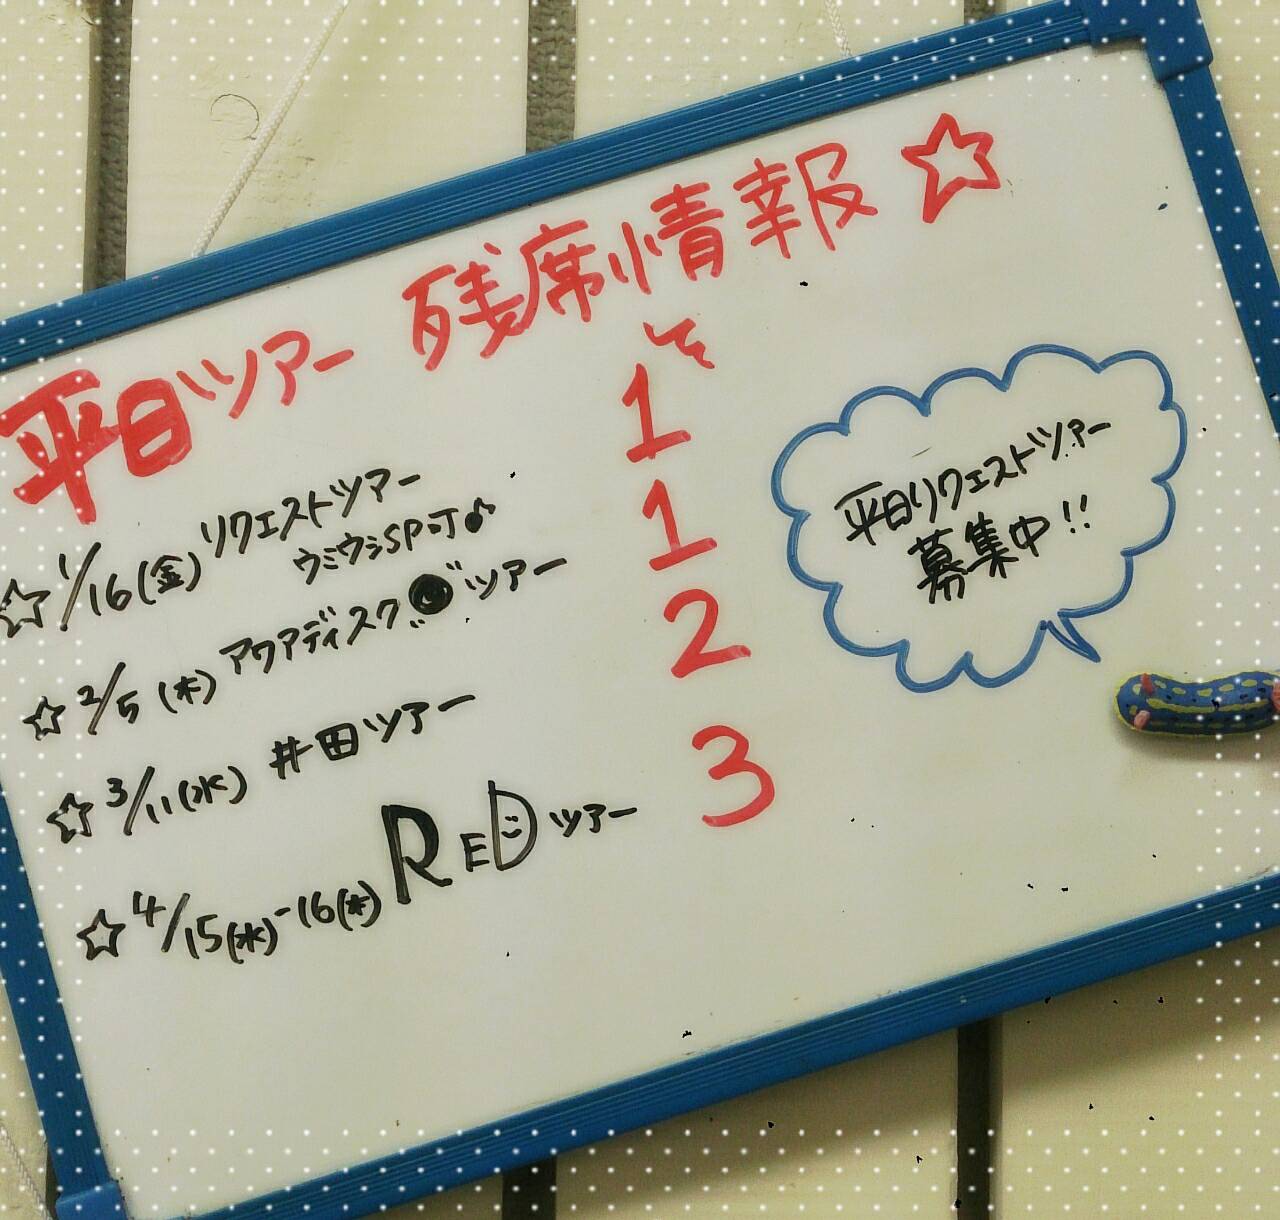 平日ツアー 残席情報☆
☆1/16(金)リクエストツアー 1
ウミウシSP・J♪
☆2/5(木)アクアディスク●ツアー 1
☆3/11(水)井田ツアー 2
☆4/15(水)-16(木)REDツアー 3
平日リクエストツアー
募集中!!